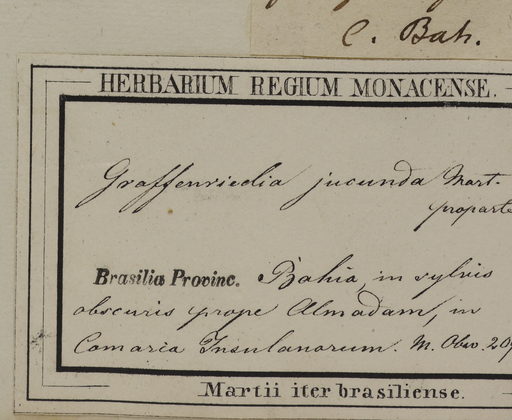 C. Bah.
HERBARIUM REGIUM MONACENSE.
Graffenriedia jucunda Mart.
proparte
Brasilia Provinc. Bahia, in sylvis
obscuris prope Almadam, in
Comarca Insulanorum. M. Obs.
Martii iter brasiliense.